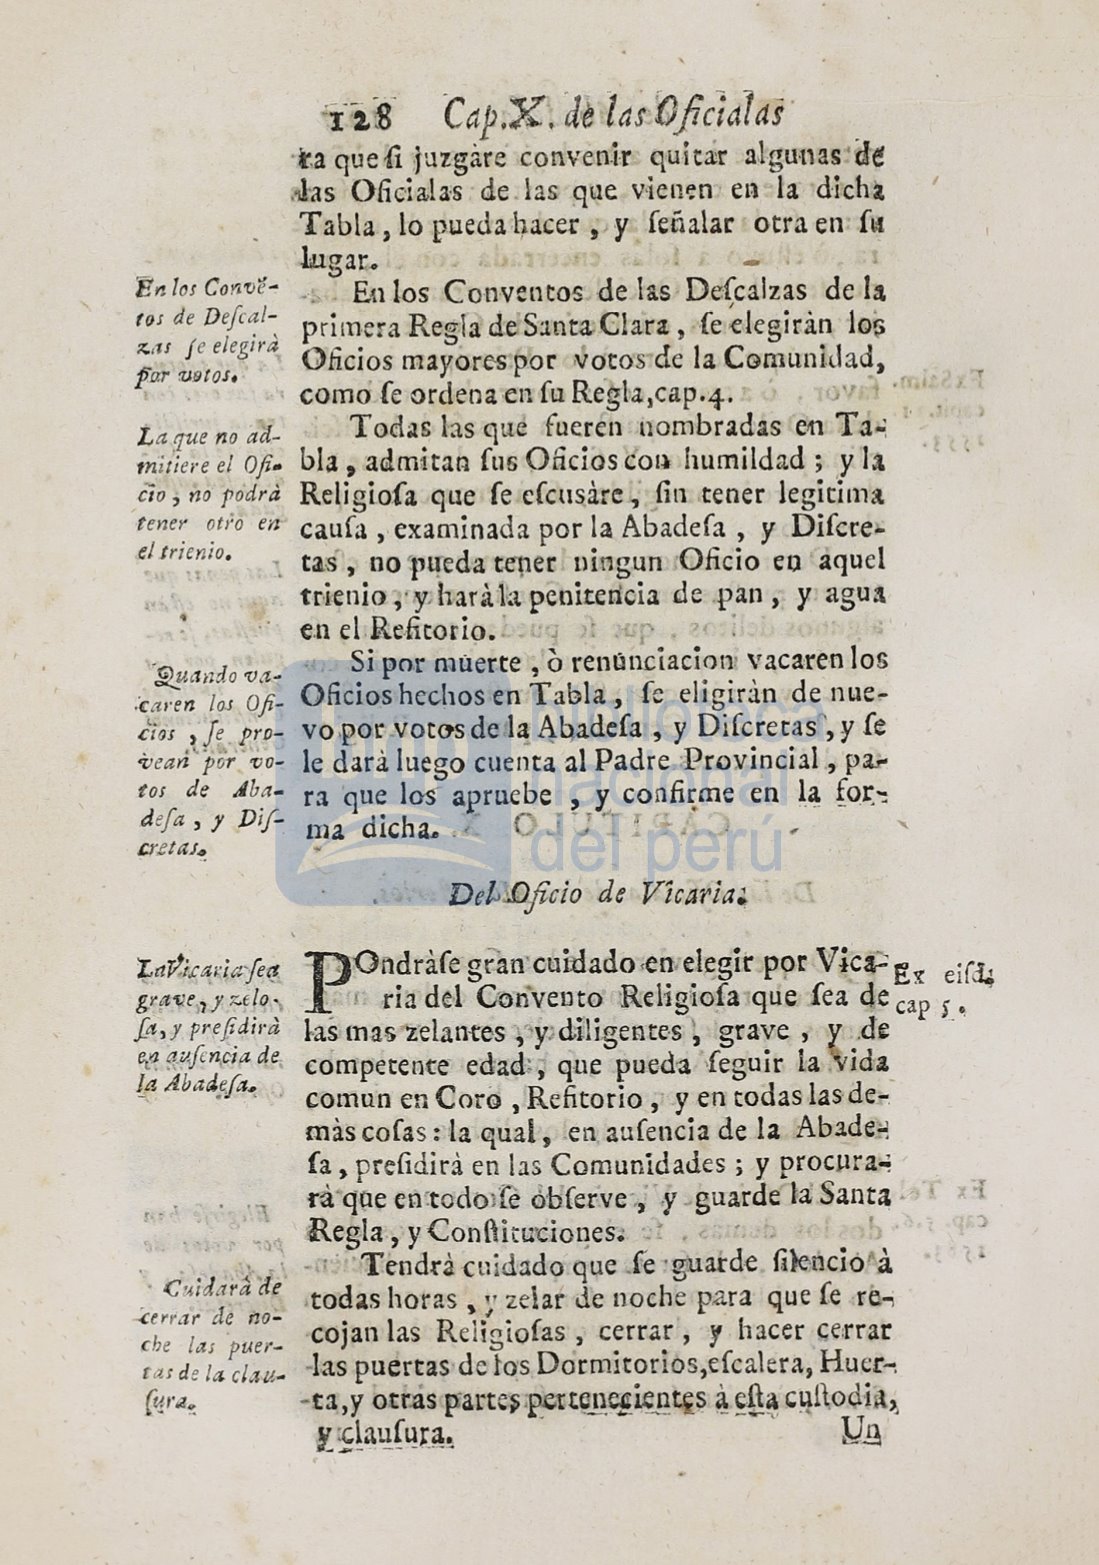 128 Cap.X. de las Oficialas
ra que ſi juzgàre convenir quitar algunas de
las Oficialas de las que vienen en la dicha
Tabla, lo pueda hacer, y ſeñalar otra en ſu
lugar.
En los Convẽ-
tos de Deſcal-
zas ſe elegirà
por votos.
En los Conventos de las Deſcalzas de la
primera Regla de Santa Clara, ſe elegiràn los
Oficios mayores por votos de la Comunidad,
como ſe ordena en ſu Regla, cap.4.
La que no ad-
mitiere el Ofi-
cio, no podrà
tener otro en
el trienio.
Todas las que fueren nombradas en Ta-
bla, admitan ſus Oficios con humildad; y la
Religioſa que ſe eſcusàre, ſin tener legitima
cauſa, examinada por la Abadeſa, y Diſcre-
tas, no pueda tener ningun Oficio en aquel
trienio, y harà la penitencia de pan, y agua
en el Refitorio.
Quando va-
caren los Ofi-
cios, ſe pro-
vean por vo-
tos de Aba-
deſa, y Diſ-
cretas.
Si por muerte, ò renunciacion vacaren los
Oficios hechos en Tabla, ſe eligiràn de nue-
vo por votos de la Abadeſa, y Diſcretas, y ſe
le darà luego cuenta al Padre Provincial, pa-
ra que los apruebe, y confirme en la for-
ma dicha.
biblioteca
nacional
del perú
Del Oficio de Vicaria.
La Vicaria ſea
grave, y zelo-
ſa, y preſidirà
en auſencia de
la Abadeſa.
POndràſe gran cuidado en elegir por Vica-
ria del Convento Religioſa que ſea de
las mas zelantes, y diligentes, grave, y de
competente edad, que pueda ſeguir la vida
comun en Coro, Refitorio, y en todas las de-
màs coſas: la qual, en auſencia de la Abade-
ſa, preſidirà en las Comunidades; y procura-
rà que en todo ſe obſerve, y guarde la Santa
Regla, y Conſtituciones.
Ex eiſd.
cap 5.
Cuidarà de
cerrar de no-
che las puer-
tas de la clau-
ſura.
Tendrà cuidado que ſe guarde ſilencio à
todas horas, y zelar de noche para que ſe re-
cojan las Religioſas, cerrar, y hacer cerrar
las puertas de los Dormitorios, eſcalera, Huer-
ta, y otras partes pertenecientes à eſta cuſtodia,
y clauſura.
Un